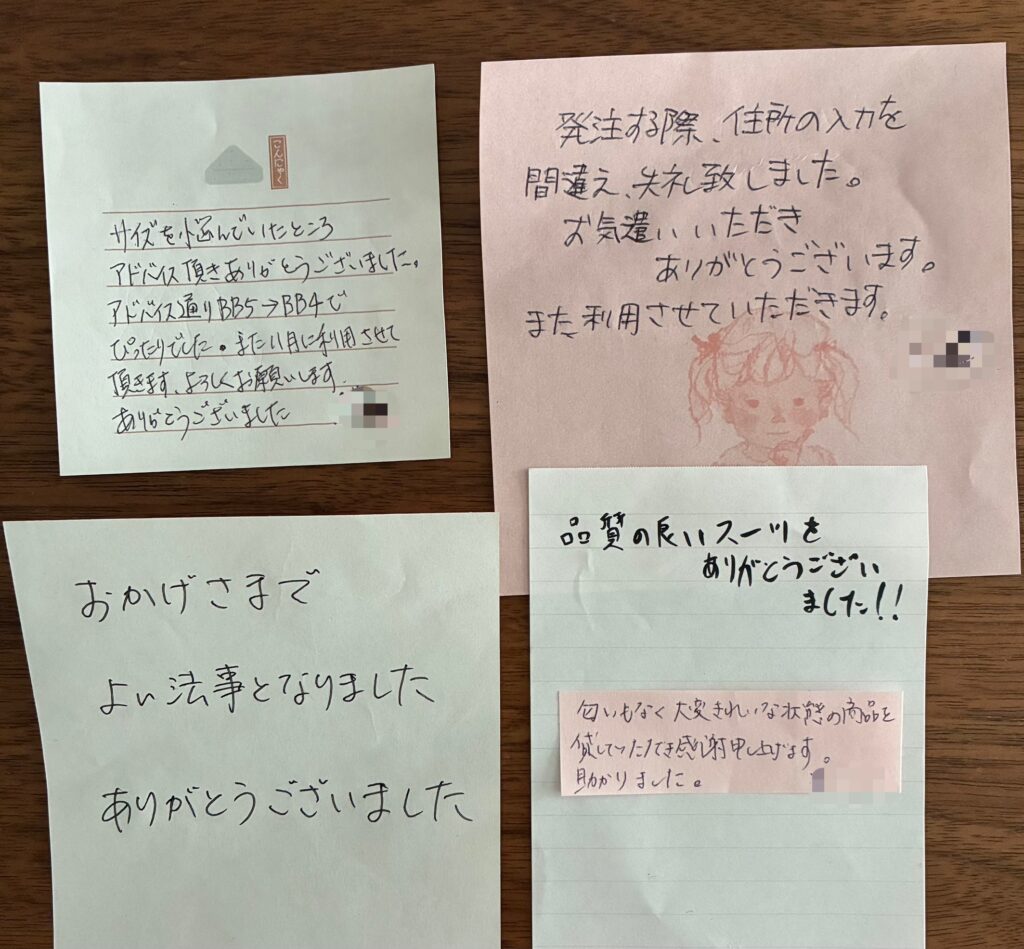 こんにゃく
サイズを悩んでいたところ
アドバイス頂きありがとうございました。
アドバイス通りBB5→BB4で
ぴったりでした。また11月に利用させて
頂きます、よろしくお願いします。
ありがとうございました
発注する際、住所の入力を
間違え、失礼致しました。
お気遣いいただき
ありがとうございます。
また利用させていただきます。
おかげさまで
よい法事となりました
ありがとうございました
品質の良いスーツを
ありがとうござい
ました!!
匂いもなく大変きれいな状態の商品を
貸していただき感謝申し上げます。
助かりました。